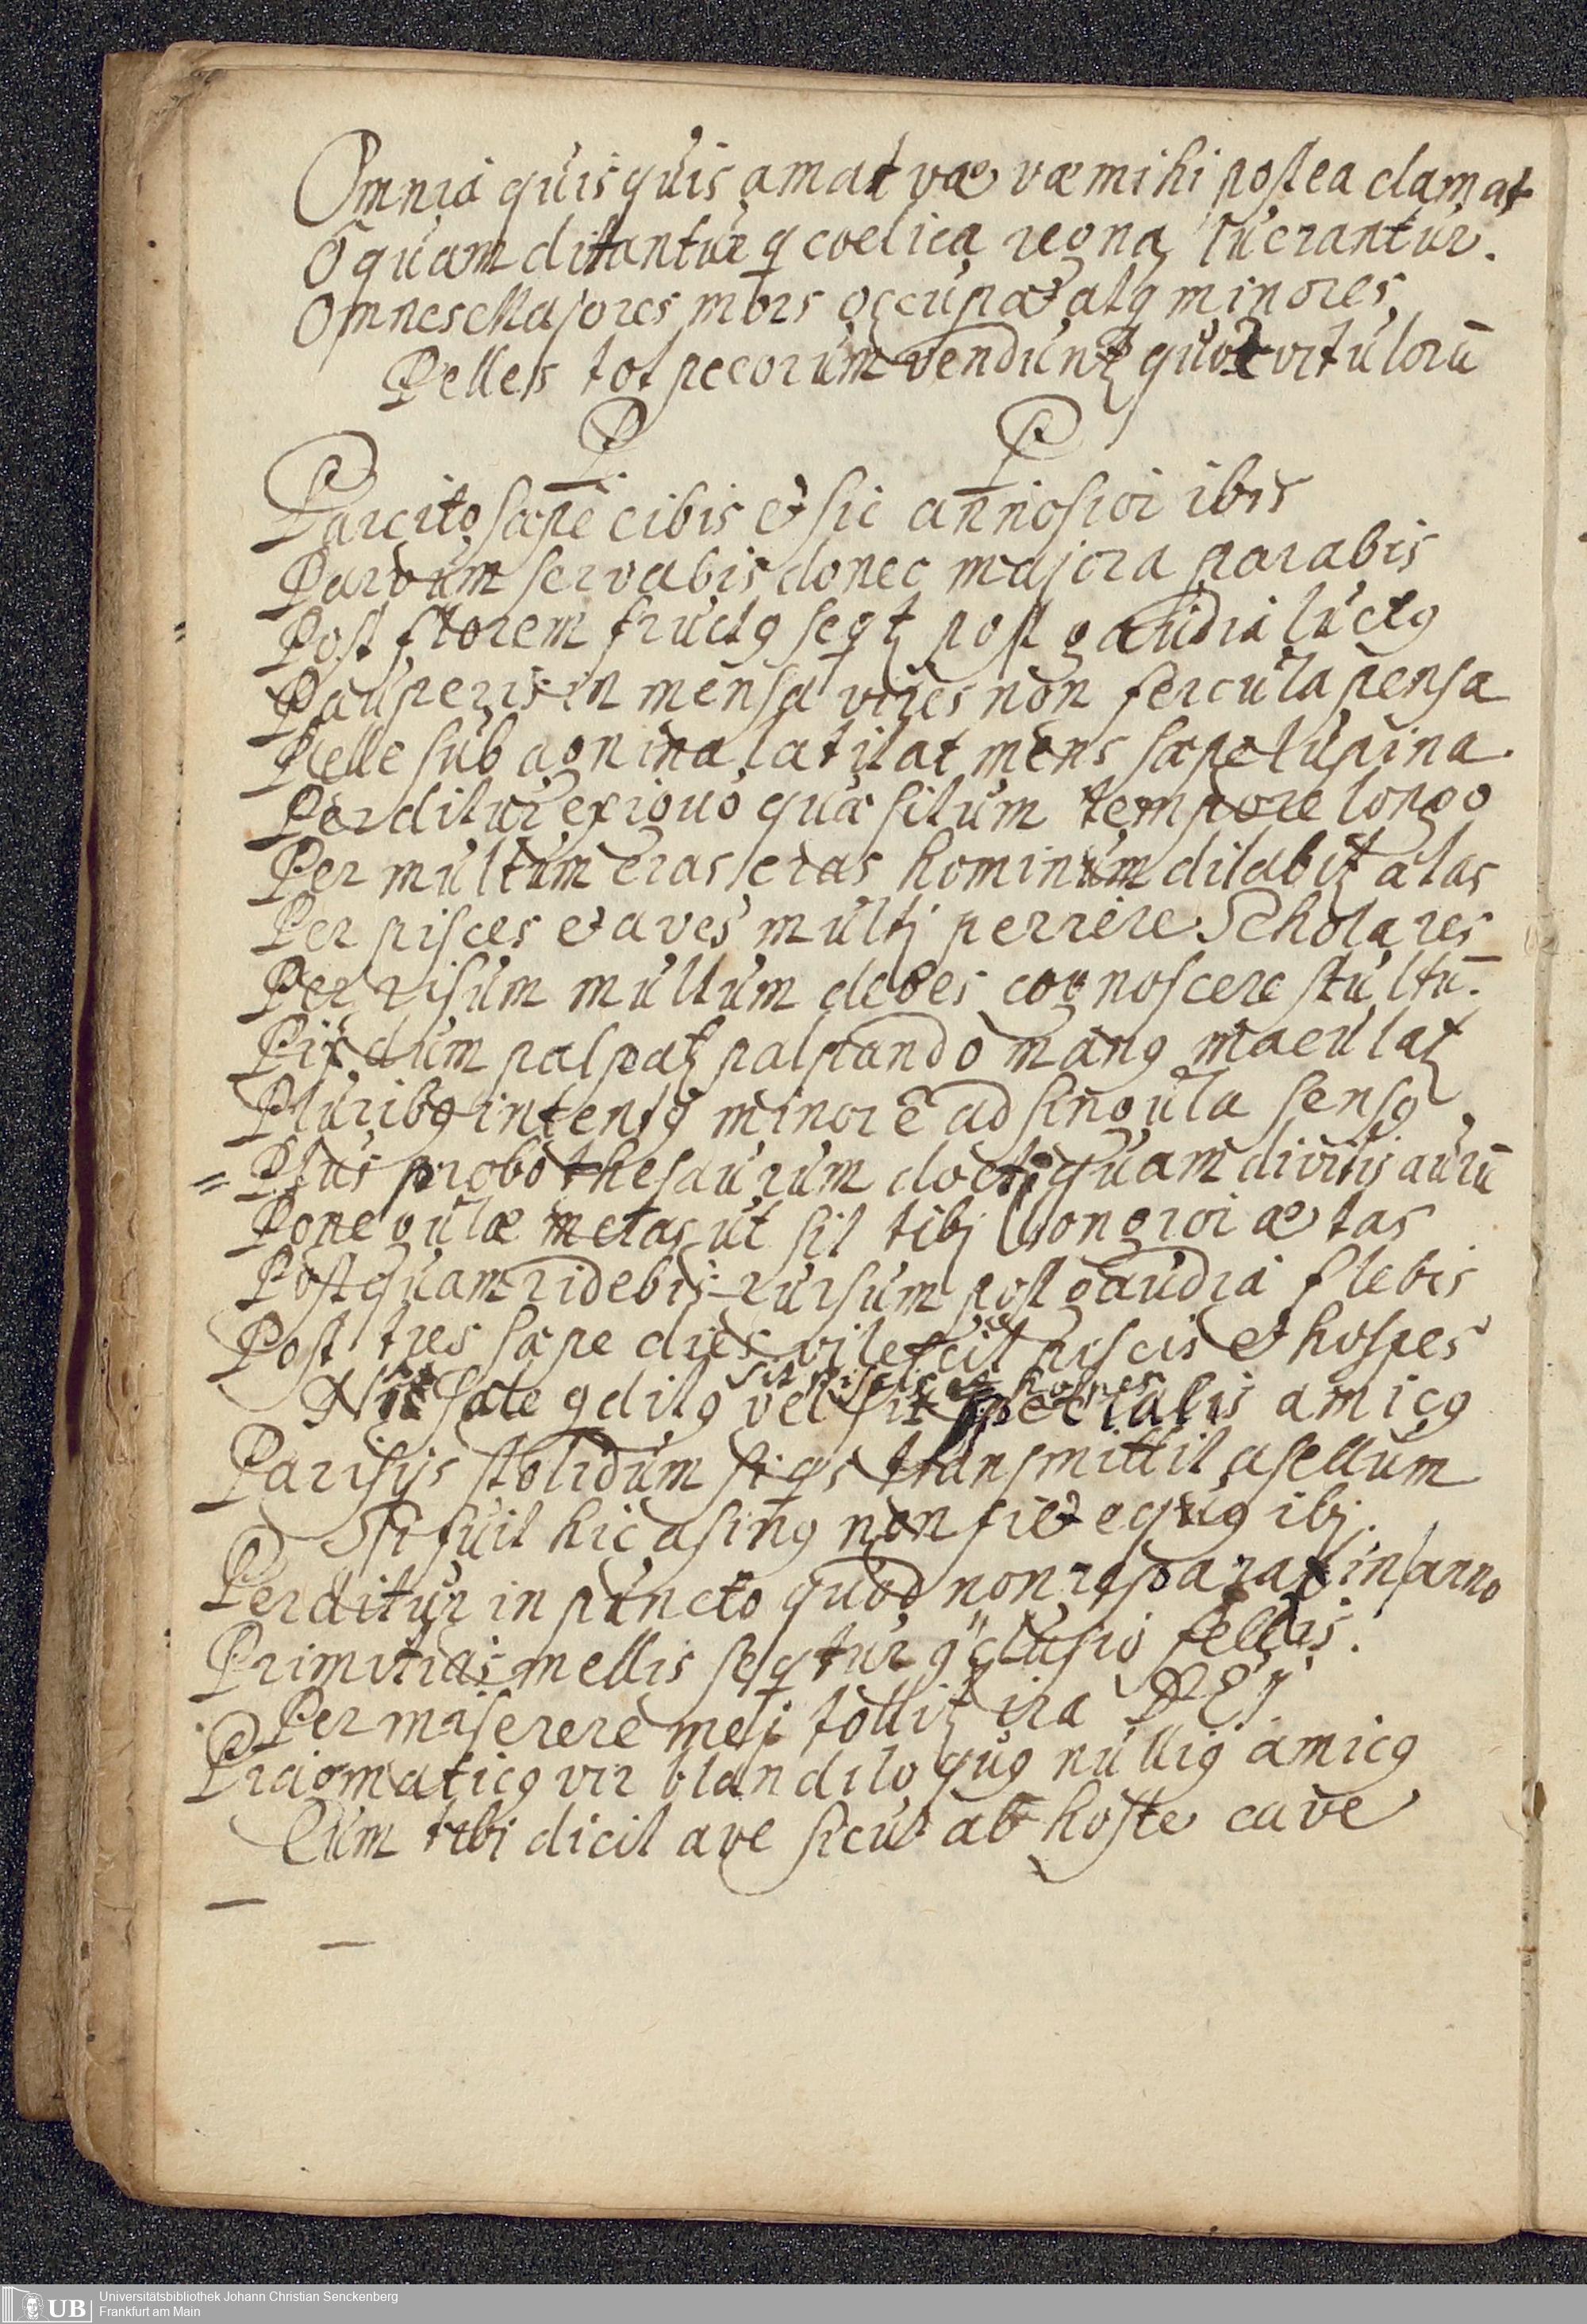 Omnia quisquis amat væ væ mihi postea clamat
O quam ditantur q coelica regna lucrantur.
Omnes Majores mors occupat atq minores,
Pelles tot pecorum vendunt quot vitulorū
P. P
Parcito sæpe cibis et sic annosior ibis
Parvum servabis donec majora parabis
= Post florem fructq seqt post gaudia luctq
Pauperis in mensa vires non fercula pensa
Pelle sub agnina latitat mens sæpe lupina.
Perditur exiguo quæsitum tempore longo
Per multum cras cras hominum dilabit ætas
Per pisces et aves multj periere Scholares
Per risum multum debes cognoscere stultū.
Pix dum palpat palpando manq maculat
Pluribq intentq minor ē ad singula sensq,
= Plus probo thesaurum docti quam divitis aurū
Pone gulæ metas ut sit tibj longior ætas
Postquam ridebis rursum post gaudia flebis
Post tres sæpe dies vilescit piscis et hospes
sit piscis et hospes
Ni sale qditq vel sit specialis amicq
Parisijs stolidum si qs transmittit asellum
Si fuit hic asinq non fiet equq ibj.
Perditur in puncto quod non reparat in anno
Primitias mellis seqtur qclusio fellis.
Per miserere mej tollit ira DEJ
Pragmaticq vir blandiloquq nulliq amicq
Cum tibi dicit ave sicut ab hoste cave
UB Universitätsbibliothek Johann Christian Senckenberg
Frankfurt am Main